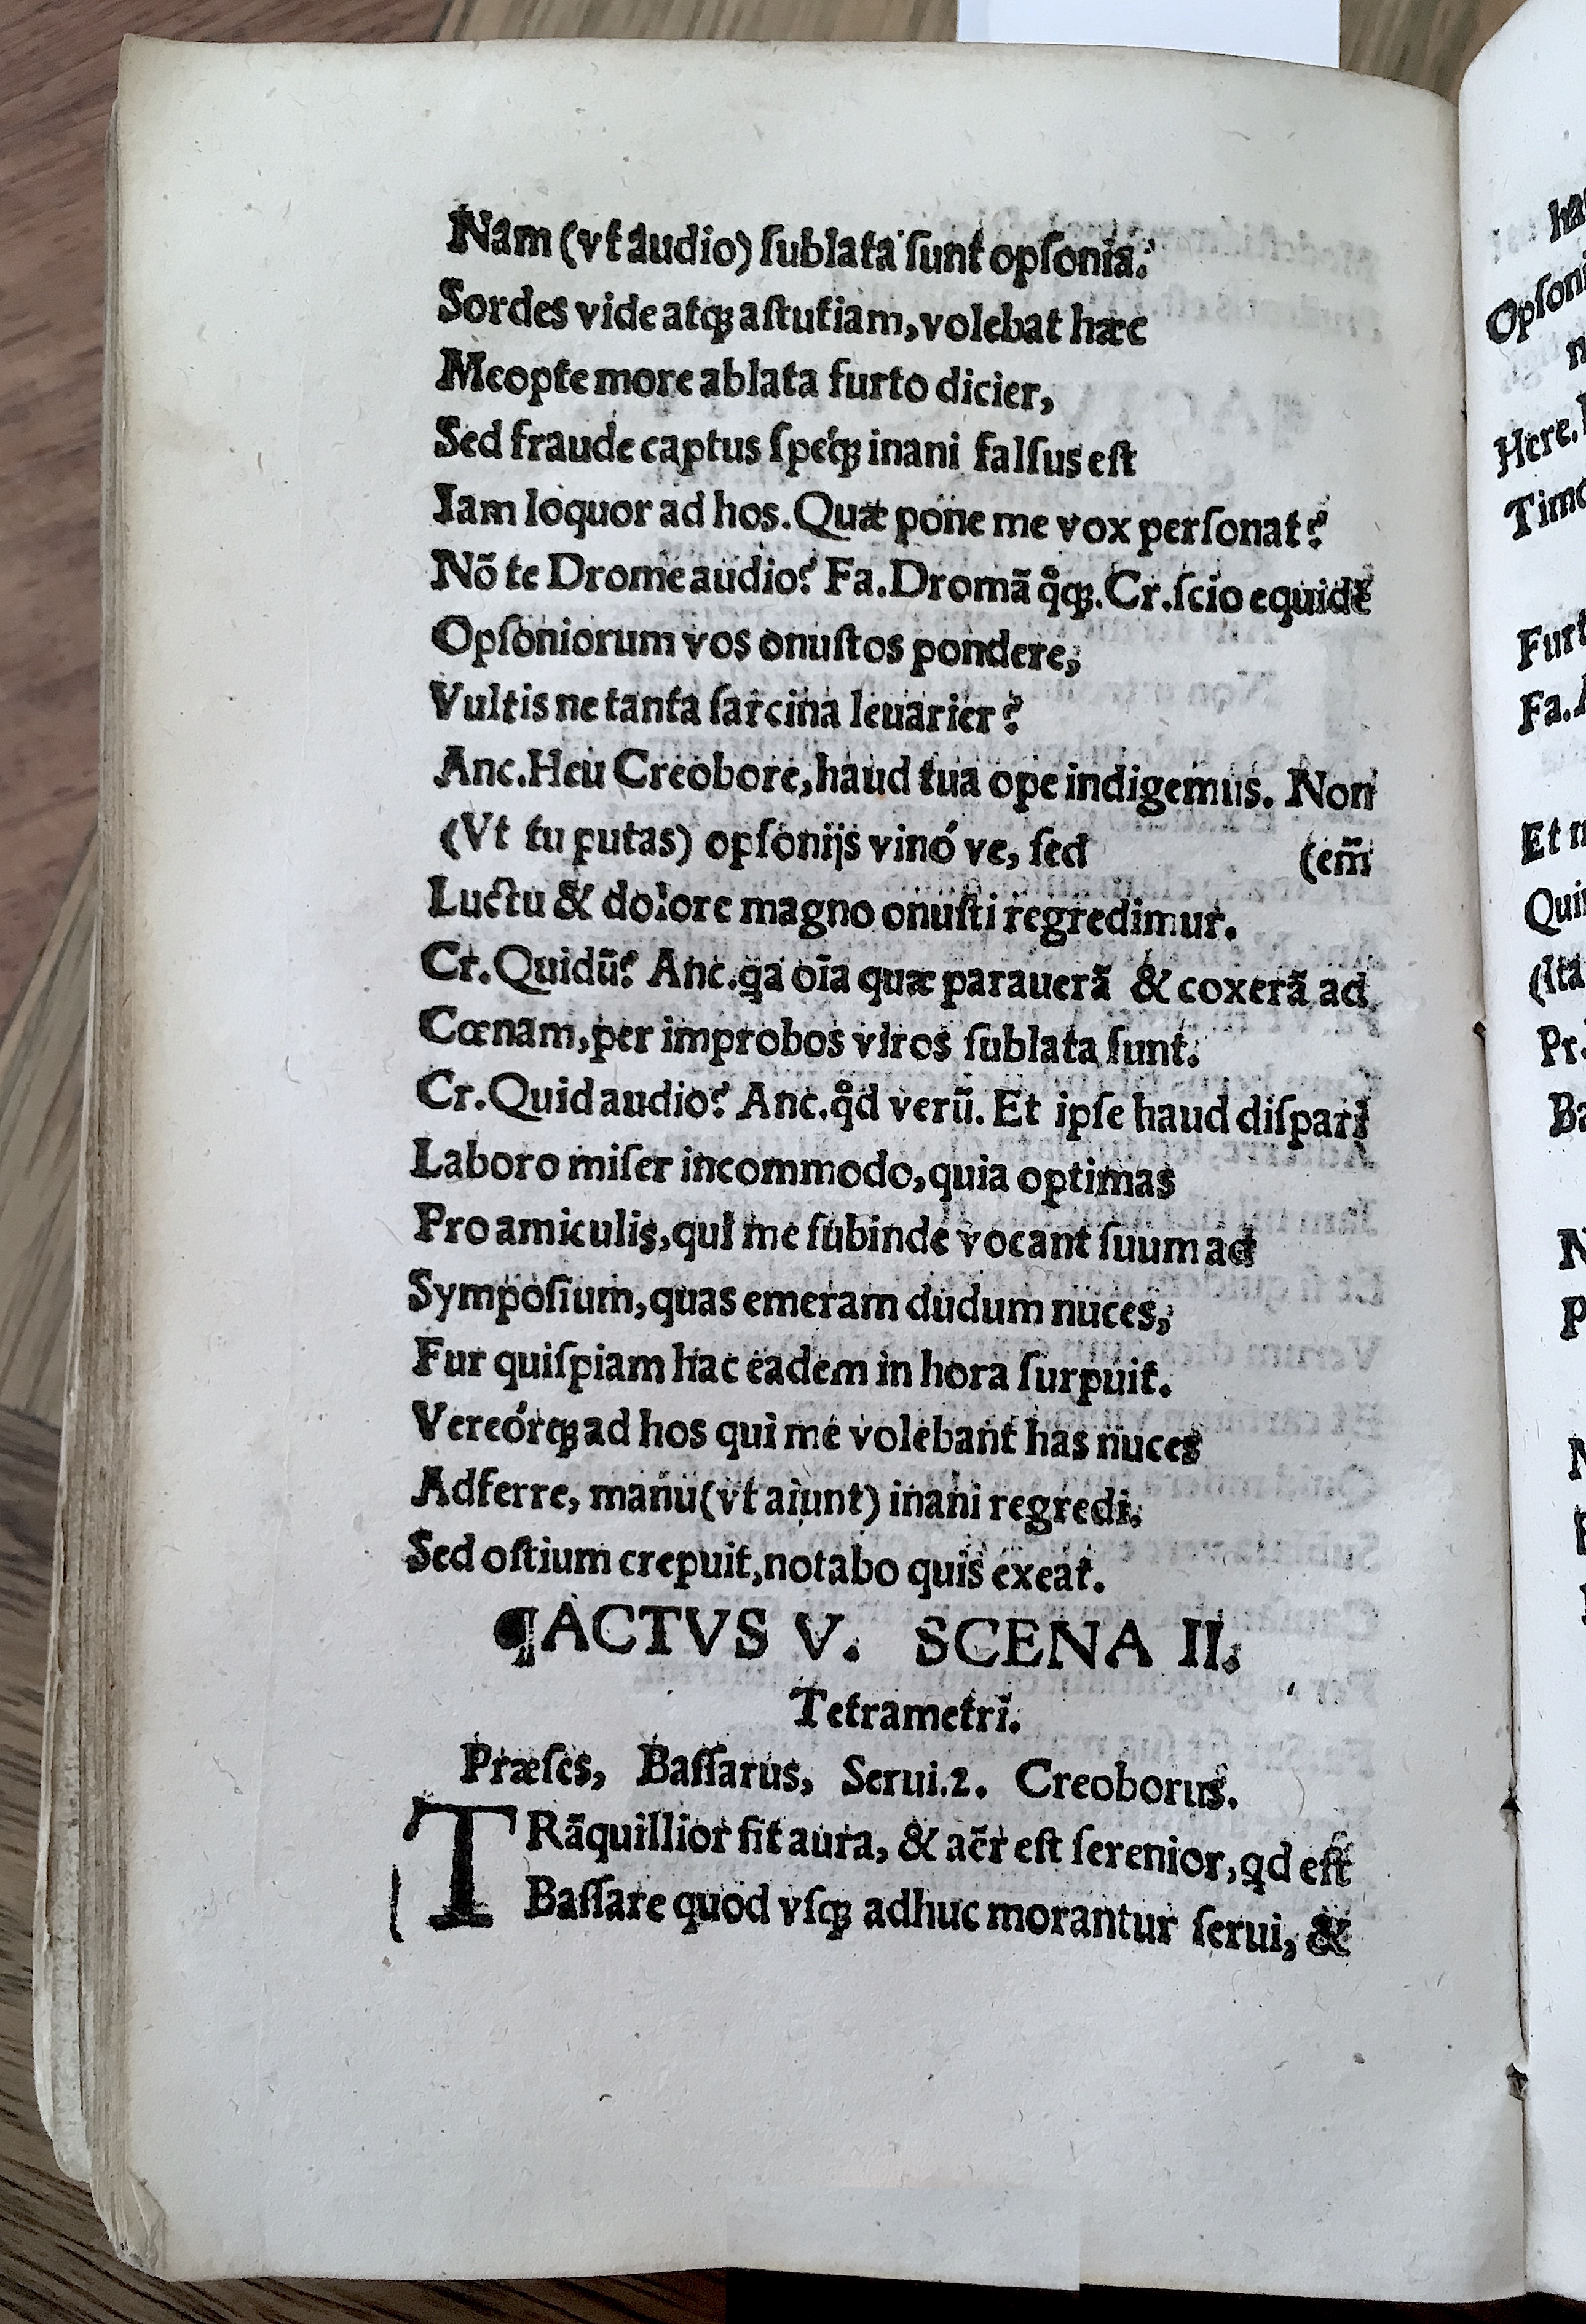 Nam (vt audio) ſublata ſunt opſonia.
Sordes vide atqꝫ aſtutiam, volebat hæc
Meopte more ablata furto dicier,
Sed fraude captus ſpéqꝫ inani falſus eſt
Iam loquor ad hos. Quæ pone me vox perſonat?
Nõ te Drome audio? Fa. Dromã qͦqꝫ. Cr. ſcio equidẽ
Opſoniorum vos onuſtos pondere,
Vultis ne tanta ſarcina leuarier?
Anc. Heu Creobore, haud tua ope indigemus. Non
(Vt tu putas) opſonijs vinó ve, ſed (em̃
Luctu & dolore magno onuſti regredimur.
Cr. Quidũ? Anc. ꝗa oĩa quæ parauerã & coxerã ad
Cœnam, per improbos viros ſublata ſunt.
Cr. Quid audio? Anc. qͦd verũ. Et ipſe haud diſpari
Laboro miſer incommodo, quia optimas
Pro amiculis, qui me ſubinde vocant ſuum ad
Sympoſium, quas emeram dudum nuces,
Fur quiſpiam hac eadem in hora ſurpuit.
Vereórqꝫ ad hos qui me volebant has nuces
Adferre, manu (vt aiunt) inani regredi.
Sed oſtium crepuit, notabo quis exeat.
¶ACTVS V. SCENA II.
Tetrametri.
Præſes, Baſſarus, Serui.2. Creoborus.
TRãquillior fit aura, & aër eſt ſerenior, ꝗd eſt
Baſſare quod vſqꝫ adhuc morantur ſerui, &
Opſoni
Here.
Timo
Furt
Fa.
Et
Qui
(Ita
Pr.
Ba